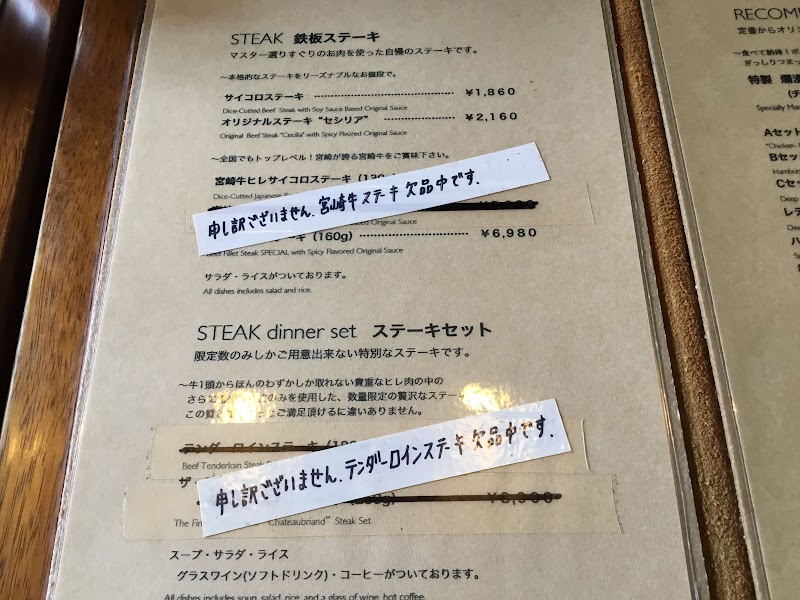 STEAK 鉄板ステーキ
マスター選りすぐりのお肉を使った自慢のステーキです。
～本格的なステーキをリーズナブルなお値段で。
サイコロステーキ ¥1,860
Dice-Cutted Beef Steak with Soy Sauce Based Original Sauce
オリジナルステーキ“セシリア” ¥2,160
Original Beef Steak "Cecilia" with Spicy Flvored Original Sauce
～全国でもトップレベル！宮崎が誇る宮崎牛をご賞味下さい。
宮崎牛ヒレサイコロステーキ
Dice-Cutted Japanese
申し訳ございません. 宮崎牛ステーキ 欠品中です.
Original Sauce
ーキ（160g） ¥6,980
Beef Fillet Steak SPECIAL with Spicy Flavored Original Sauce
サラダ・ライスがついております。
All dishes includes salad and rice.
STEAK dinner set ステーキセット
限定数のみしかご用意出来ない特別なステーキです。
～牛1頭からほんのわずかしか取れない貴重なヒレ肉の中の
さら のみを使用した、数量限定の贅沢なステー
この贅 ご満足頂けるに違いありません。
テンダーロインステーキ
Beef Tenderloin Steak
申し訳ございません. テンダーロインステーキ 欠品中です.
ザ
The Fin "Chateaubriand" Steak Set
スープ・サラダ・ライス
グラスワイン(ソフトドリンク)・コーヒーがついております。
All dishes includes soup, salad, rice, and a glass of wine, hot coffee.
RECOM
定番からオリジ
～食べて納得！ボ
ぎっしりつまっ
特製
Specially Ma
Aセット
"Chicken
Bセッ
Hambur
Cセ
Deep
レデ
Deep
ハ